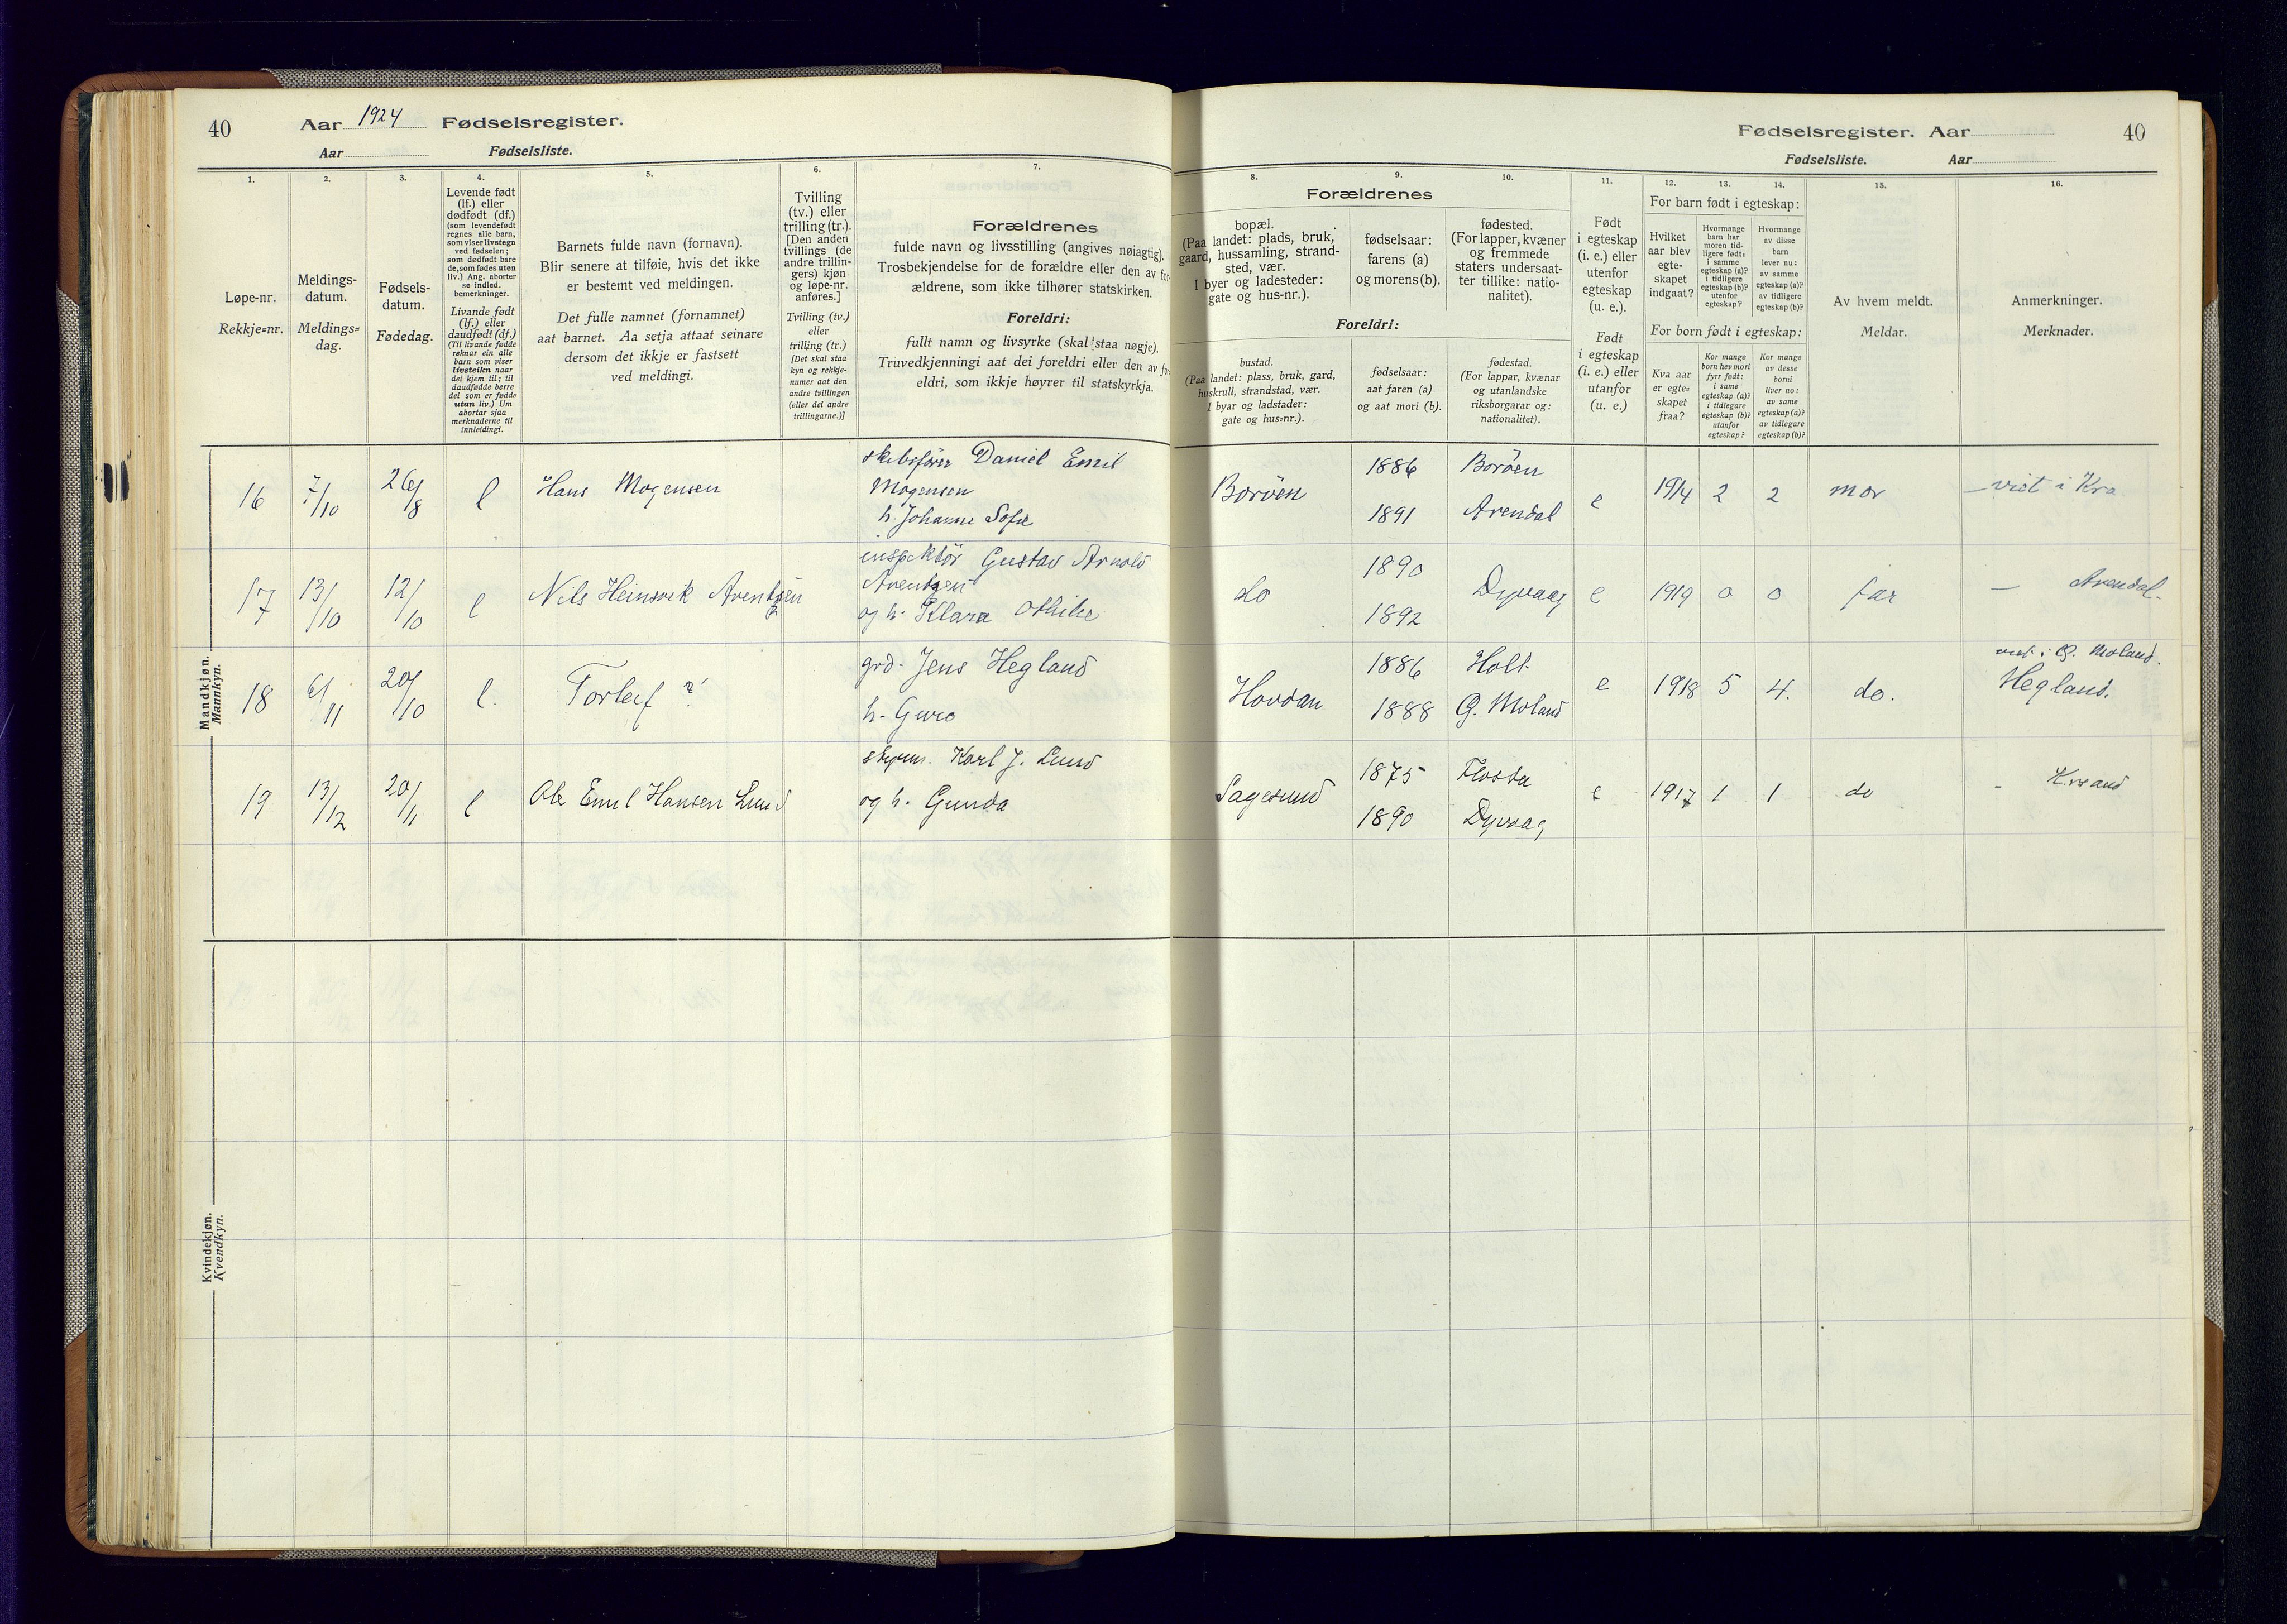 40
Aar 1924 Fødselsregister.
Aar Fødselsliste.
Fødselsregister. Aar
40
Fødselsliste. Aar
1.
Løpe-nr.
Rekkje=nr.
2.
Meldings-
datum.
Meldings=
dag.
3.
Fødsels-
datum.
Fødedag.
4.
Levende født
(lf.) eller
dødfødt (df.)
(som levendefødt
regnes alle barn,
som viser livstegn
ved fødselen;
som dødfødt bare
de, som fødes uten
liv.) Ang. aborter
se indled.
bemerkninger.
Livande født
(lf.) eller
daudfødt (df.)
(Til livande fødde
reknar ein alle
barn som viser
livsteikn naar
dei kjem til; til
daudfødde berre
dei som er fødde
utan liv.) Um
abortar sjaa
merknaderne til
innleidingi.
5.
Barnets fulde navn (fornavn).
Blir senere at tilføie, hvis det ikke
er bestemt ved meldingen.
Det fulle namnet (fornamnet)
aat barnet. Aa setja attaat seinare
dersom det ikkje er fastsett
ved meldingi.
6.
Tvilling
(tv.) eller
trilling (tr.).
[Den anden
tvillings (de
andre trillin-
gers) kjøn
og løpe-nr.
anføres.]
Tvilling (tv.)
eller
trilling (tr.)
[Det skal staa
kyn og rekkje-
numer aat den
andre tvillingen
(eller dei andre
trillingarne.)]
7.
Forældrenes
fulde navn og livsstilling (angives nøiagtig).
Trosbekjendelse for de forældre eller den av for-
ældrene, som ikke tilhører statskirken.
Foreldri:
fullt namn og livsyrke (skal staa nøgje).
Truvedkjenningi aat dei foreldri eller den av
eldri, som ikkje høyrer til statskyrkja.
Forældrenes
8.
bopæl.
(Paa landet: plads, bruk,
gaard, hussamling, strand-
sted, vær.
I byer og ladesteder:
gate og hus-nr.).
9.
fødselsaar:
farens (a)
og morens (b).
10.
fødested.
(For lapper, kvæner
og fremmede
staters undersaat-
ter tillike: natio-
nalitet).
Foreldri:
bustad.
(Paa landet: plass, bruk, gard,
huskrull, strandstad, vær.
I byar og ladstader:
gate og hus=nr.).
fødselsaar:
aat faren (a)
og aat mori (b).
fødestad.
(For lappar, kvænar
og utanlandske
riksborgarar og:
nationalitet).
11.
Født
i egteskap
(i. e.) eller
utenfor
egteskap
(u. e.).
Født
i egteskap
(i. e.) eller
utanfor
(u. e.)
12. 13. 14.
For barn født i egteskap:
Hvilket
aar blev
egte-
skapet
indgaat?
Hvormange
barn har
moren tid-
ligere født:
i samme
egteskap (a)?
i tidligere
egteskap (b)?
utenfor
egteskap?
Hvormange
av disse
barn
lever nu:
av samme
egteskap (a)?
av tidligere
egteskap (b)?
For born født i egteskap:
Kva aar
er egte=
skapet
fraa?
Kor mange
born hev mori
fyrr født:
i same
egteskap (a)?
i tidlegare
egteskap (b)?
utanfor
egteskap?
Kor mange
av desse
borni
liver no:
av same
egteskap (a)?
av tidlegare
egteskap (b)?
15.
Av hvem meldt.
Meldar.
16.
Anmerkninger.
Merknader.
Mandkjøn.
Mannkyn.
16 7/10 26/8 l Hans Mogensen
skibsfører Daniel Emil
Mogensen
h. Johanne Sofie
Borøen 1886 Borøen
1891 Arendal
e 1914 2 2 mor – vist i Kra
17 13/10 12/10 l Nils Heinsvik Arentzen
inspektør Gustav Arnold
Arentzen
og h. Klara Othilie
do 1890 Dyvaag
1892
e 1919 0 0 far – Arendal.
18 6/11 20/10 l. Torleif
grd. Jens Hegland
h. Guro
Hovdan 1886 Holt
1888 G. Moland
e 1918 5 4. do. vist i G. Moland.
Hegland.
19 13/12 20/11 l Ole Emil Hansen Lund
styrm. Karl J. Lund
og h. Gunda
Sagesund 1875 Flosta
1890 Dyvaag
e 1917 1 1 do - Kr.sand
Kvindekjøn.
Kvendkyn.